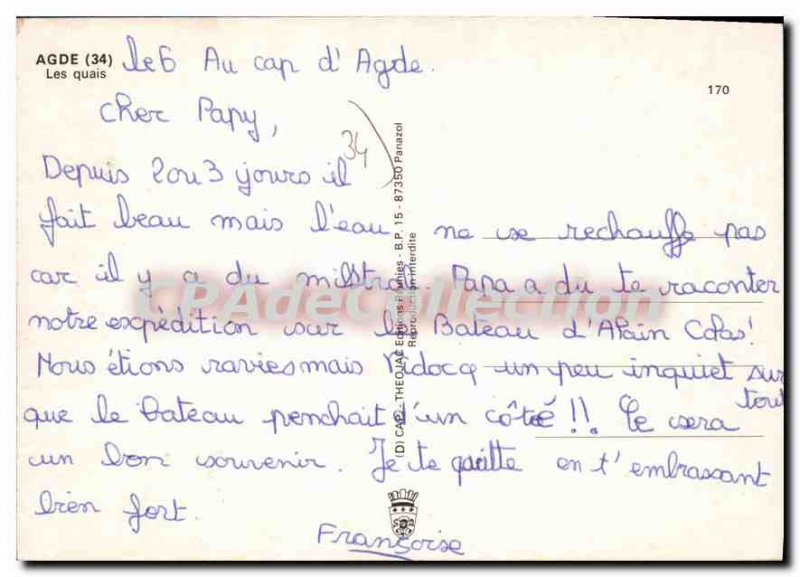 AGDE (34)
Les quais
170
le 6 Au cap d'Agde.
Cher Papy,
34
Depuis 2 ou 3 jours il
fait beau mais l'eau ne se rechauffe pas
car il y a du mistral. Papa a du te raconter
notre expédition sur le Bateau d'Alain Colas!
Nous étions ravies mais Vidocq un peu inquiet sur
tout
que le bateau penchait d'un côté!! Ce sera
un bon souvenir. Je te quitte en t'embrassant
bien fort.
Françoise
(D) CAP - THEOJAC Editions B.P. 15 - 87350 Panazol
Reproduction Interdite
CPAdeCollection